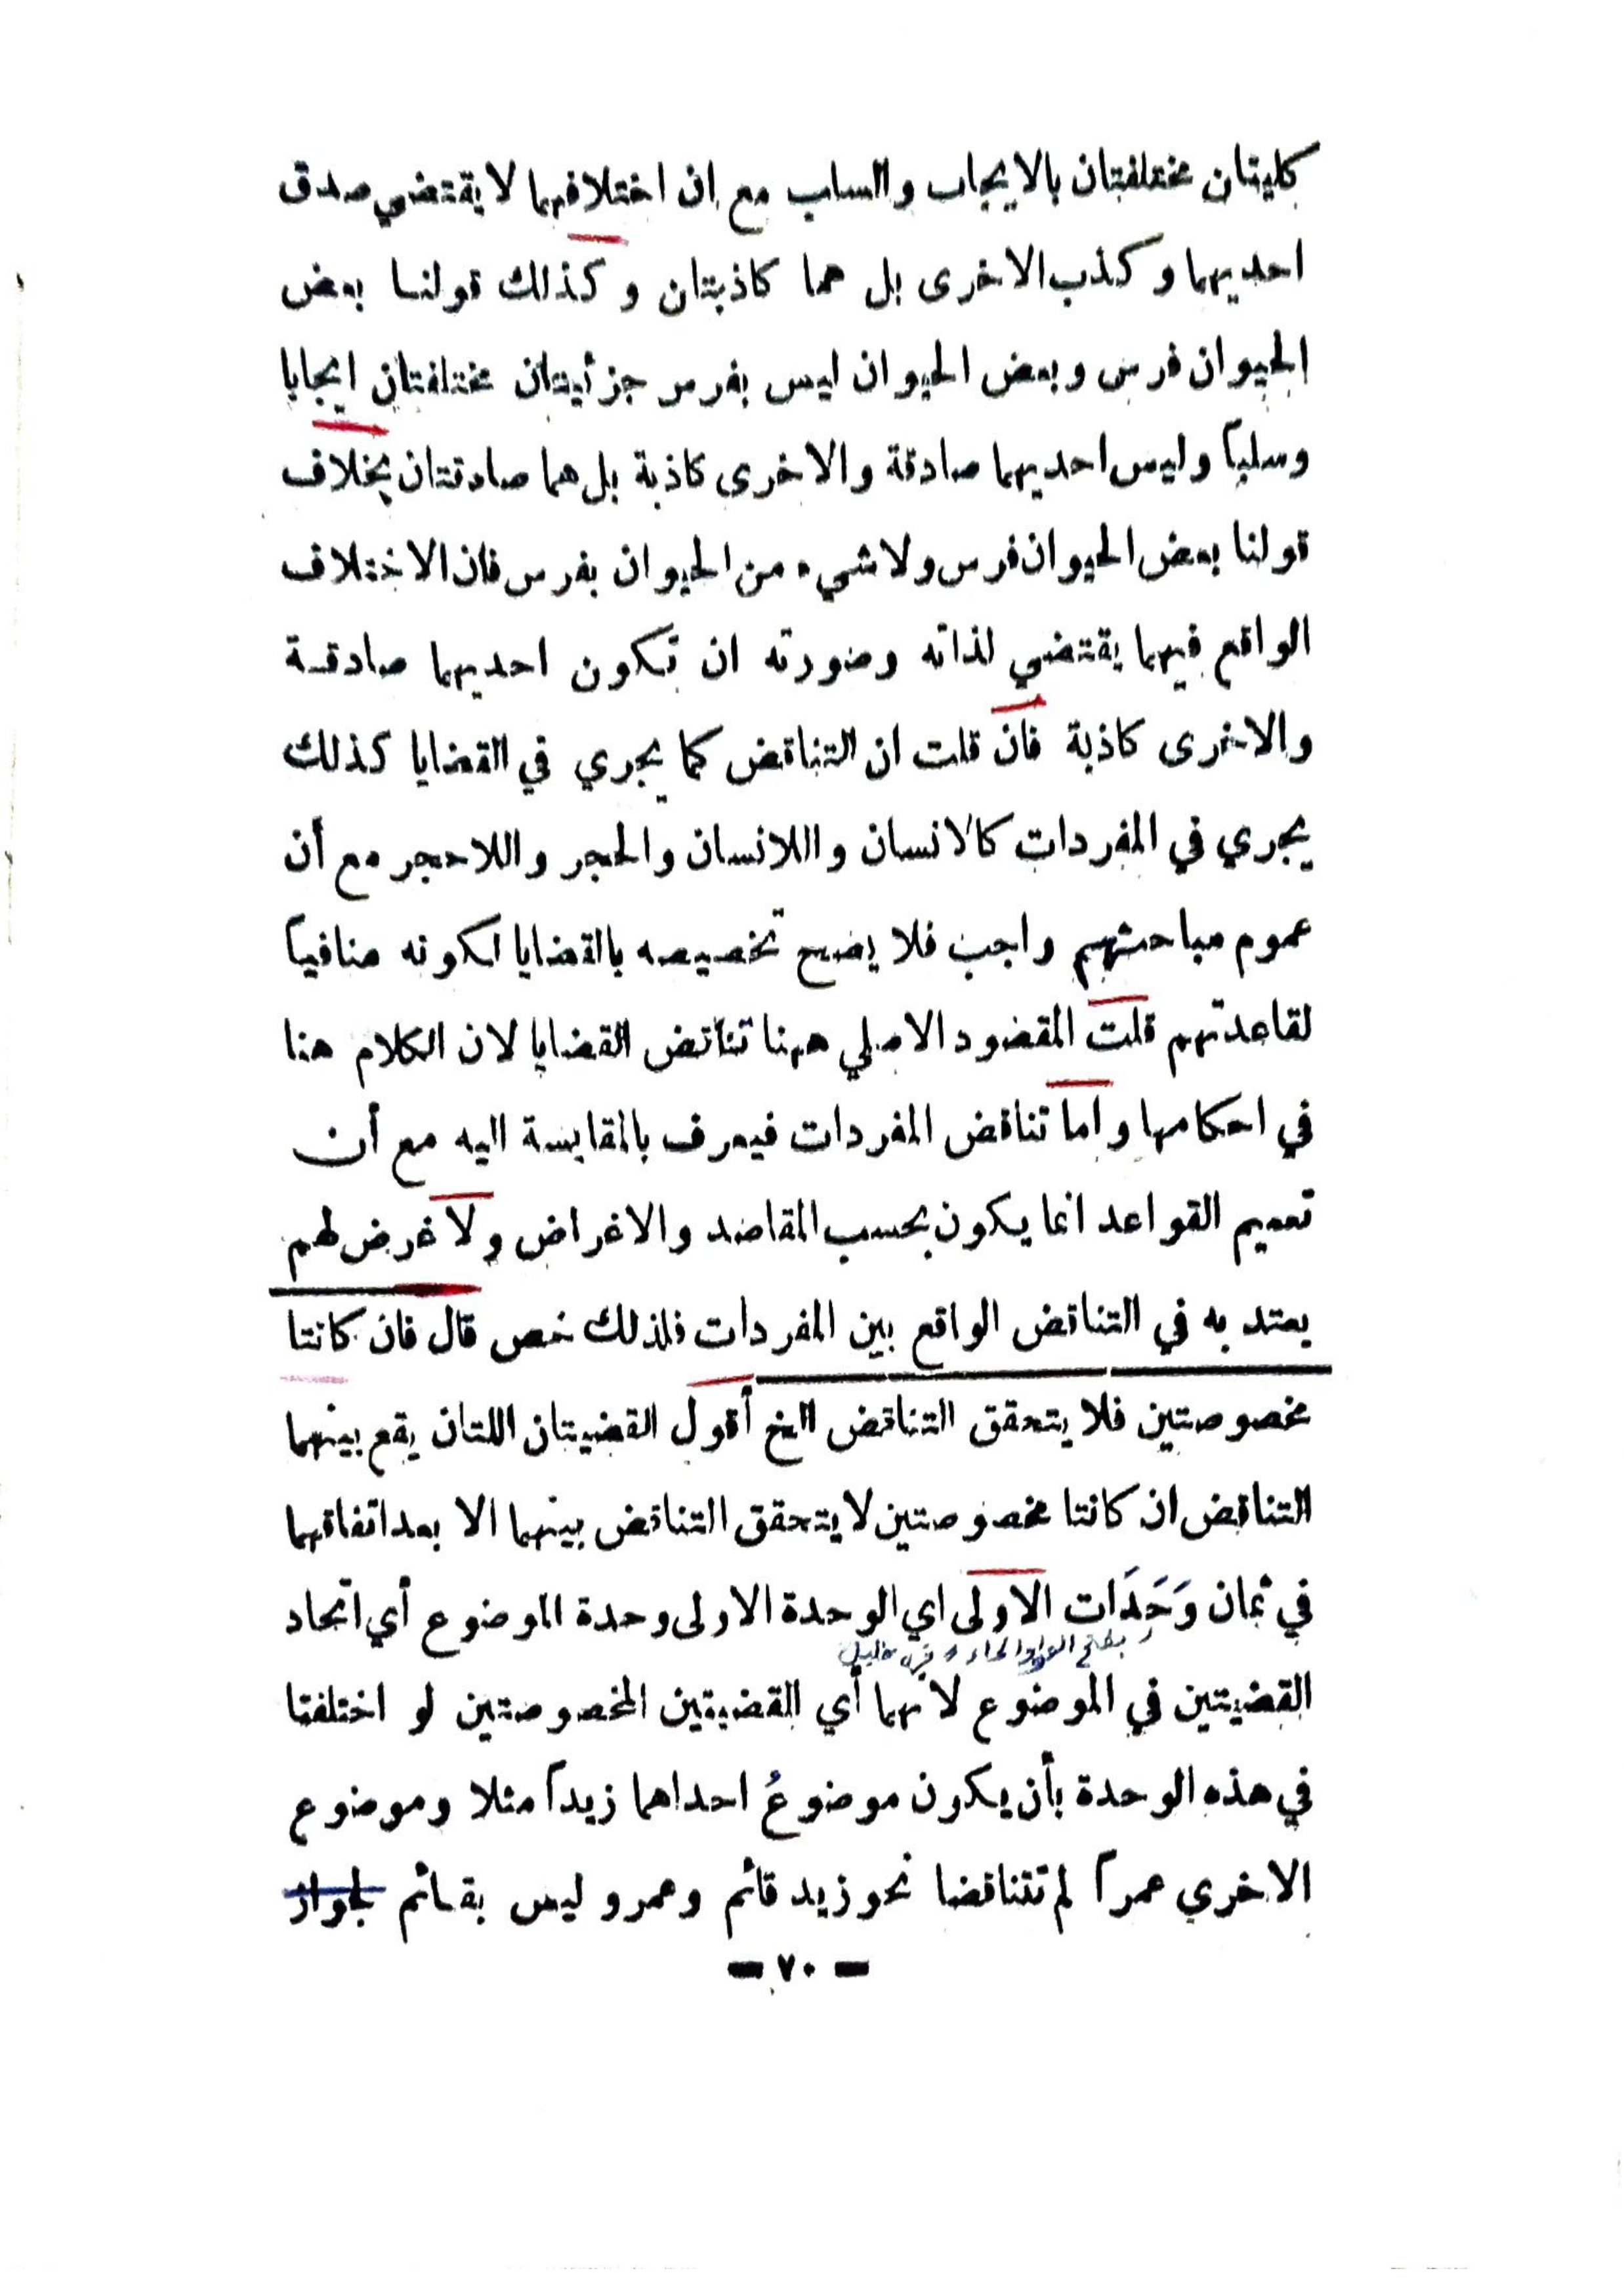 كليتان مختلفتان بالايجاب والسلب مع ان اختلافهما لا يقتضي صدق
احديهما وكذب الاخرى بل هما كاذبتان وكذلك قولنا بعض
الحيوان فرس وبعض الحيوان ليس بفرس جزأيتان مختلفتان ايجابا
وسلباً وليس احديهما صادقة والاخرى كاذبة بل هما صادقتان بخلاف
قولنا بعض الحيوان فرس ولا شيء من الحيوان بفرس فان الاختلاف
الواقع فيهما يقتضي لذاته وضورته ان تكون احديهما صادقة
والاخرى كاذبة فان قلت ان التناقض كما يجري في القضايا كذلك
يجري في المفردات كالانسان واللانسان والحجر واللاحجر مع أن
عموم مباحثهم واجب فلا يصح تخصيصه بالقضايا لكونه منافياً
لقاعدتهم قلت المقصود الاصلي ههنا تناقض القضايا لان الكلام هنا
في احكامها واما تناقض المفردات فيعرف بالمقايسة اليه مع أن
تعميم القواعد انما يكون بحسب المقاصد والاغراض ولا غرض لهم
يعتد به في التناقض الواقع بين المفردات فلذلك خص قال فان كانتا
مخصوصتين فلا يتحقق التناقض الخ أقول القضيتان اللتان يقع بينهما
التناقض ان كانتا مخصوصتين لا يتحقق التناقض بينهما الا بعد اتفاقهما
في ثمان وَحَدَات الاولى اي الوحدة الاولى وحدة الموضوع أي اتحاد
بفتح الواو والحاء
القضيتين في الموضوع لانهما أي القضيتين المخصوصتين لو اختلفتا
في هذه الوحدة بأن يكون موضوعُ احداهما زيداً مثلا وموضوع
الاخري عمراً لم تتناقضا نحو زيد قائم وعمرو ليس بقائم لجواز
- ٧٠ -